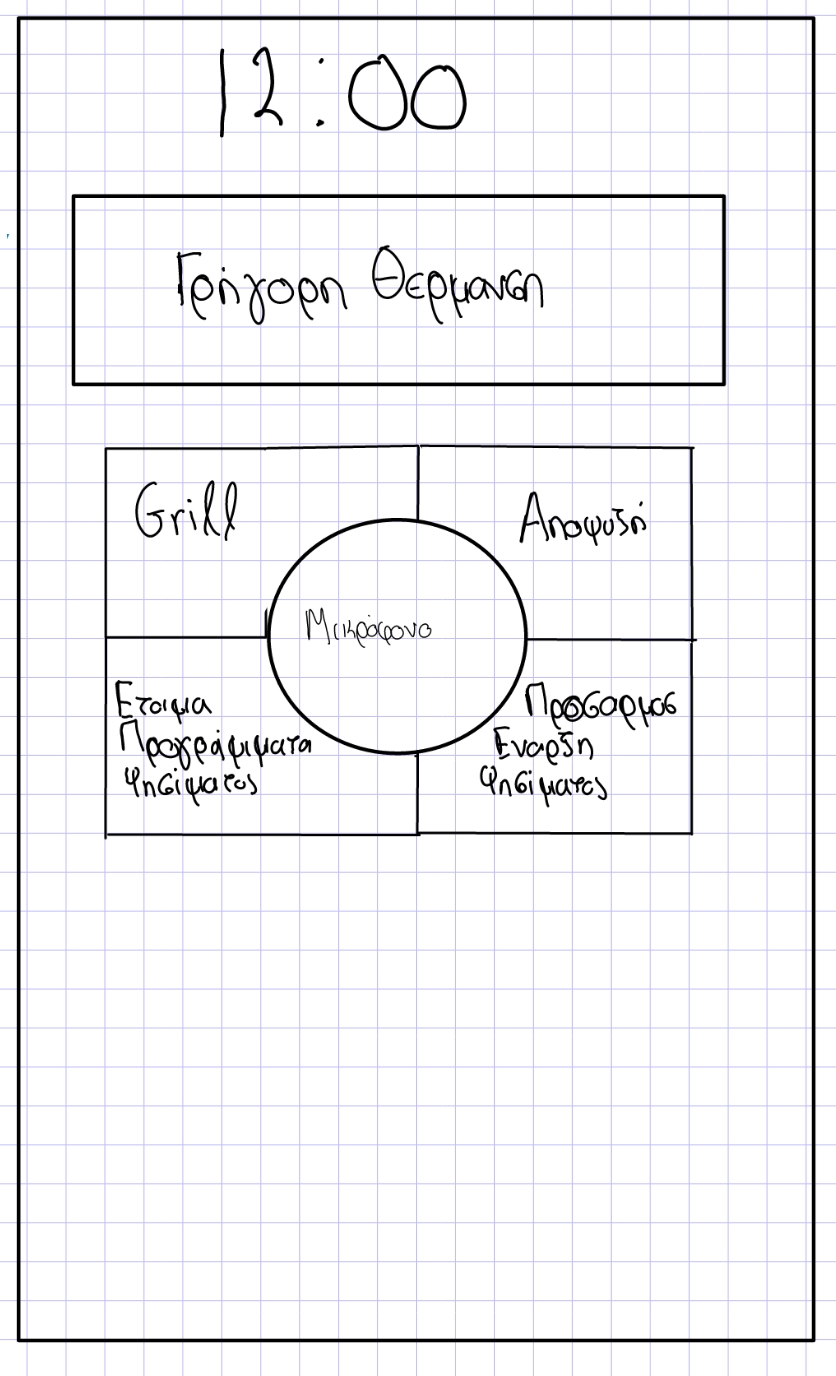 12:00
Γρήγορη Θερμανση
Grill
Αποψυξή
Μικρόφονο
Ετοιμα
Προγράμματα
Ψησίματος
Προσαρμοσ
Εναρξη
Ψησίματος